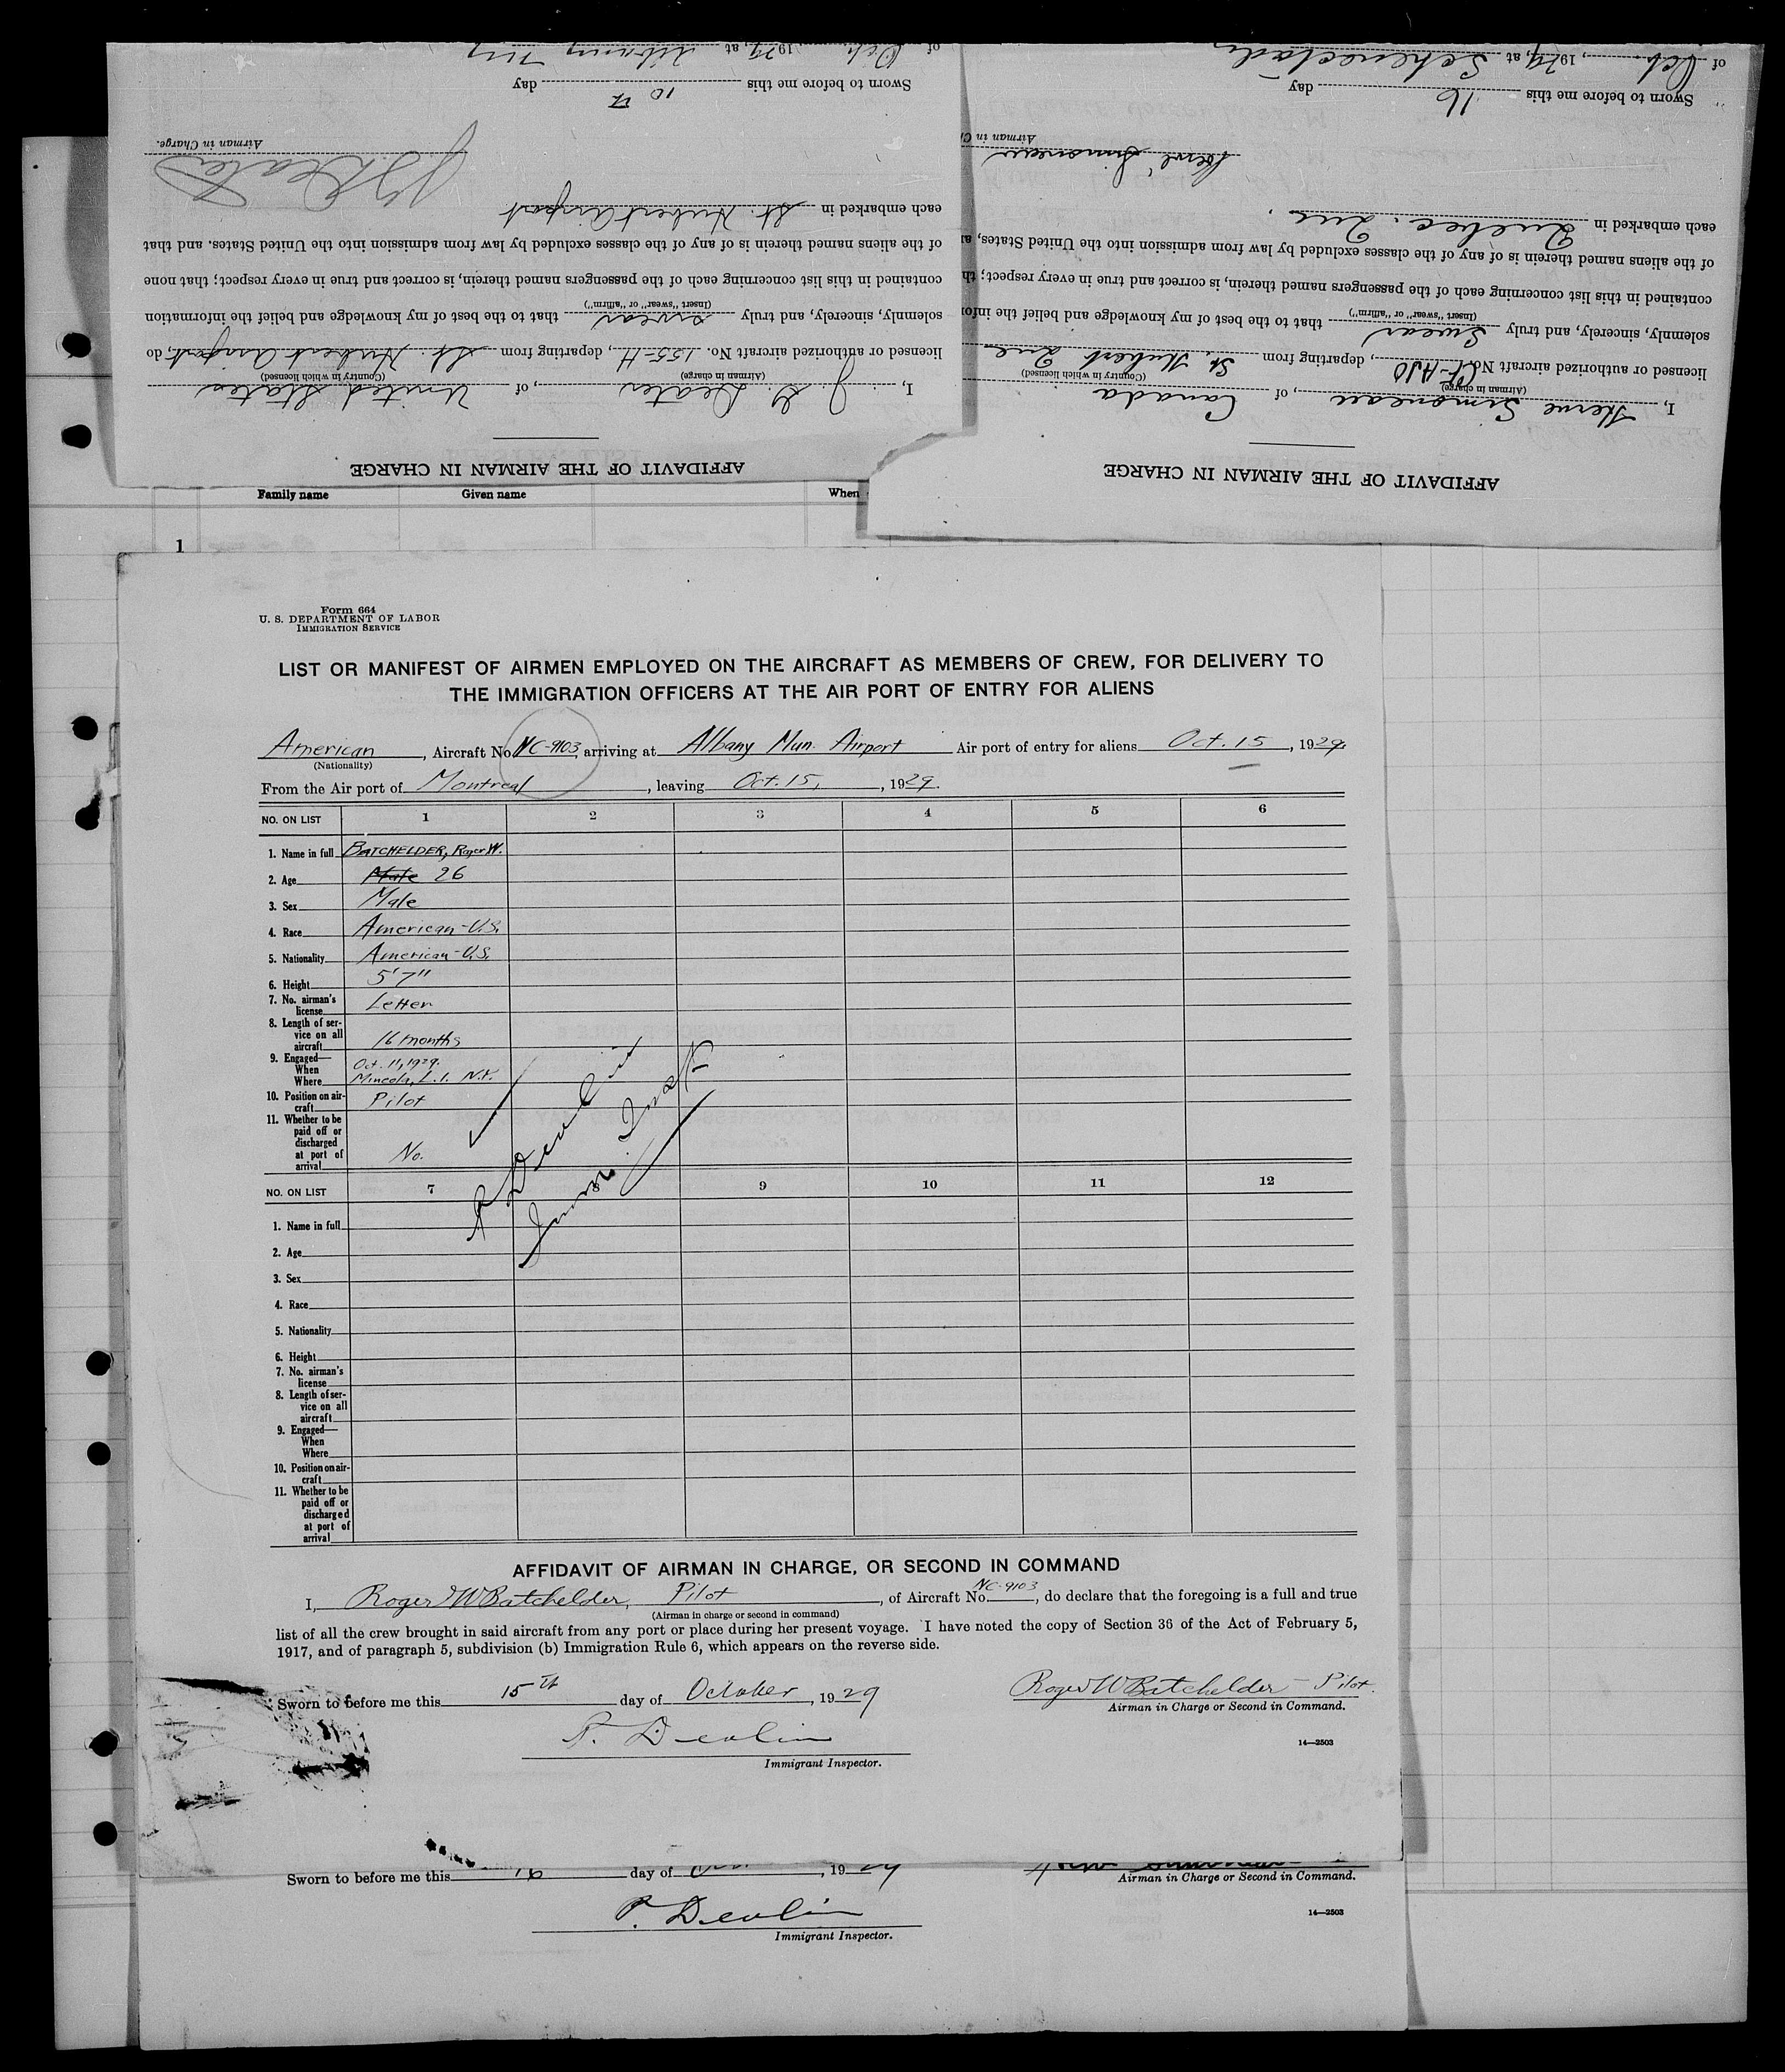 of Oct., 1929, at Albany N.Y.
Sworn to before me this 10th day
Airman in Charge.
each embarked in St. Hubert Airport
of the aliens named therein is of any of the classes excluded by law from admission into the United States, and that
contained in this list concerning each of the passengers named therein, is correct and true in every respect; that none
(Insert "swear" or "affirm")
solemnly, sincerely, and truly swear that to the best of my knowledge and belief the information
licensed or authorized aircraft No. 155-H, departing from St. Hubert Airport, do
(Airman in charge) (Country in which licensed)
I, of United States
AFFIDAVIT OF THE AIRMAN IN CHARGE
of Oct, 1929, at Schenectady
Sworn to before me this 16 day
Airman in C
Hervé Simoneau
each embarked in Quebec. Que
of the aliens named therein is of any of the classes excluded by law from admission into the United States, a
contained in this list concerning each of the passengers named therein, is correct and true in every respect; th
(Insert "swear" or "affirm")
solemnly, sincerely, and truly swear that to the best of my knowledge and belief the info
licensed or authorized aircraft No. departing from St. Hubert Que
(Airman in charge) (Country in which licensed)
I, Herve Simoneau, of Canada
AFFIDAVIT OF THE AIRMAN IN CHARGE
Family name Given name When
1
Form 664
U. S. DEPARTMENT OF LABOR
IMMIGRATION SERVICE
LIST OR MANIFEST OF AIRMEN EMPLOYED ON THE AIRCRAFT AS MEMBERS OF CREW, FOR DELIVERY TO
THE IMMIGRATION OFFICERS AT THE AIR PORT OF ENTRY FOR ALIENS
American, Aircraft No. NC-9103, arriving at Albany Mun. Airport Air port of entry for aliens Oct. 15, 1929.
(Nationality)
From the Air port of Montreal, leaving Oct. 15, 1929.
NO. ON LIST 1 2 3 4 5 6
1. Name in full BATCHELDER, Roger W.
2. Age Male 26
3. Sex Male
4. Race American-U.S.
5. Nationality American-U.S.
6. Height 5'7"
7. No. airman's
license Letter
8. Length of ser-
vice on all
aircraft 16 months
9. Engaged—
When Oct. 11, 1929.
Where Mineola, L.I. N.Y.
10. Position on air-
craft Pilot
11. Whether to be
paid off or
discharged
at port of
arrival No.
P Devlin
Imm. Inspt
NO. ON LIST 7 8 9 10 11 12
1. Name in full
2. Age
3. Sex
4. Race
5. Nationality
6. Height
7. No. airman's
license
8. Length of ser-
vice on all
aircraft
9. Engaged—
When
Where
10. Position on air-
craft
11. Whether to be
paid off or
discharged
at port of
arrival
AFFIDAVIT OF AIRMAN IN CHARGE, OR SECOND IN COMMAND
I, Roger W Batchelder, Pilot, of Aircraft No. NC-9103, do declare that the foregoing is a full and true
(Airman in charge or second in command)
list of all the crew brought in said aircraft from any port or place during her present voyage. I have noted the copy of Section 36 of the Act of February 5,
1917, and of paragraph 5, subdivision (b) Immigration Rule 6, which appears on the reverse side.
Sworn to before me this 15th day of October, 1929 Roger W Batchelder - Pilot.
Airman in Charge or Second in Command.
P. Devlin
Immigrant Inspector.
14—2503
Sworn to before me this 16 day of, 1929
Airman in Charge or Second in Command.
P. Devlin
Immigrant Inspector.
14—2503